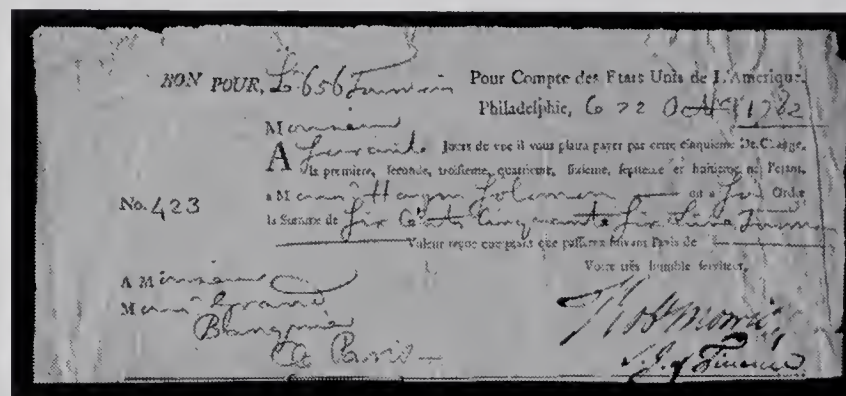 BON POUR, £ 656 Tournois Pour Compte des Etats Unis de L'Amerique.
Philadelphie, 22 1782
Monsieur
A Jours de vue il vous plaira payer par cette cinquieme De Change,
la premiere, seconde, troisieme, quatrieme, sixieme, septieme et huitieme ne l'etant,
No. 423
a M Haym Solomon ou a Son Ordre
la Somme de Six Cents Cinquante Six Livres Tournois
Valeur reçue que passerez suivant l'avis de
Votre très humble serviteur,
A Monsieur
Grand
Banquier
A Paris
Robt Morris
S. I. of Finance